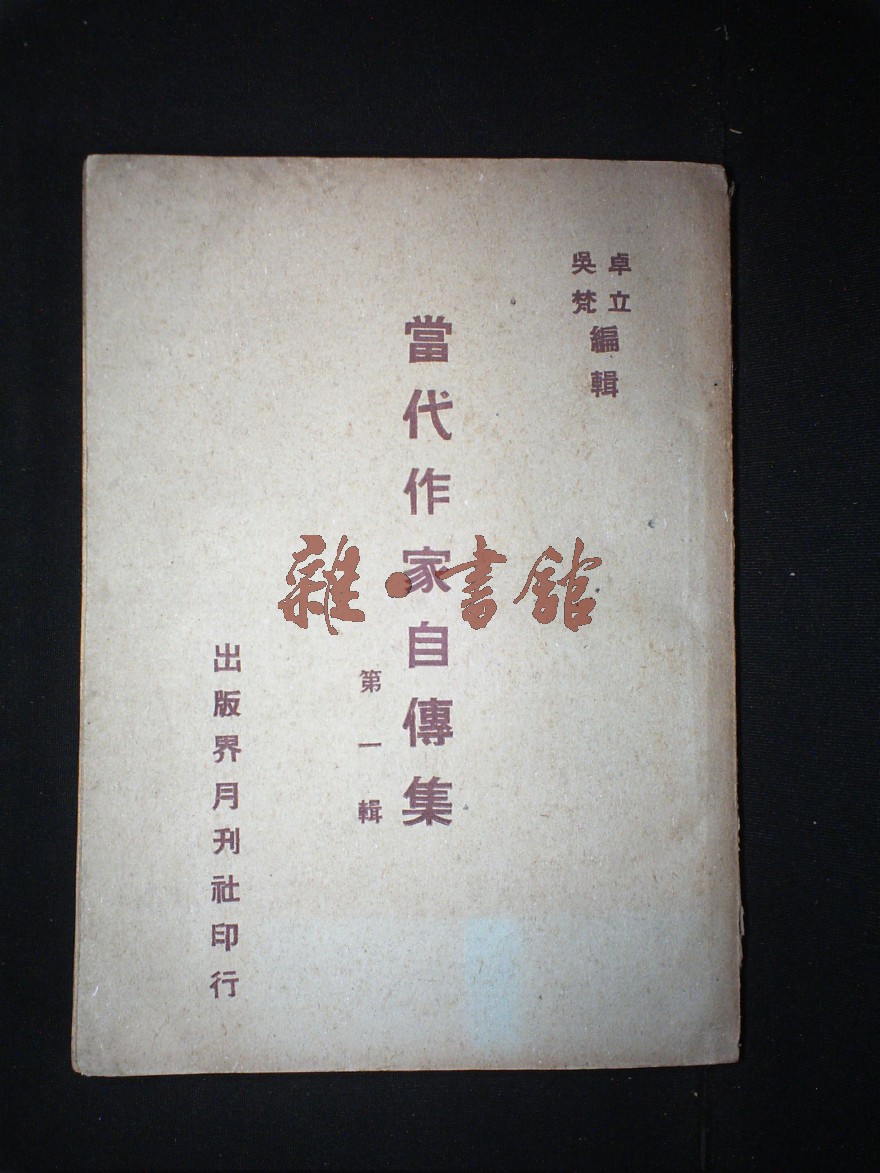 卓立
吳梵
編輯
當代作家自傳集
第一輯
出版界月刊社印行
雜·書館